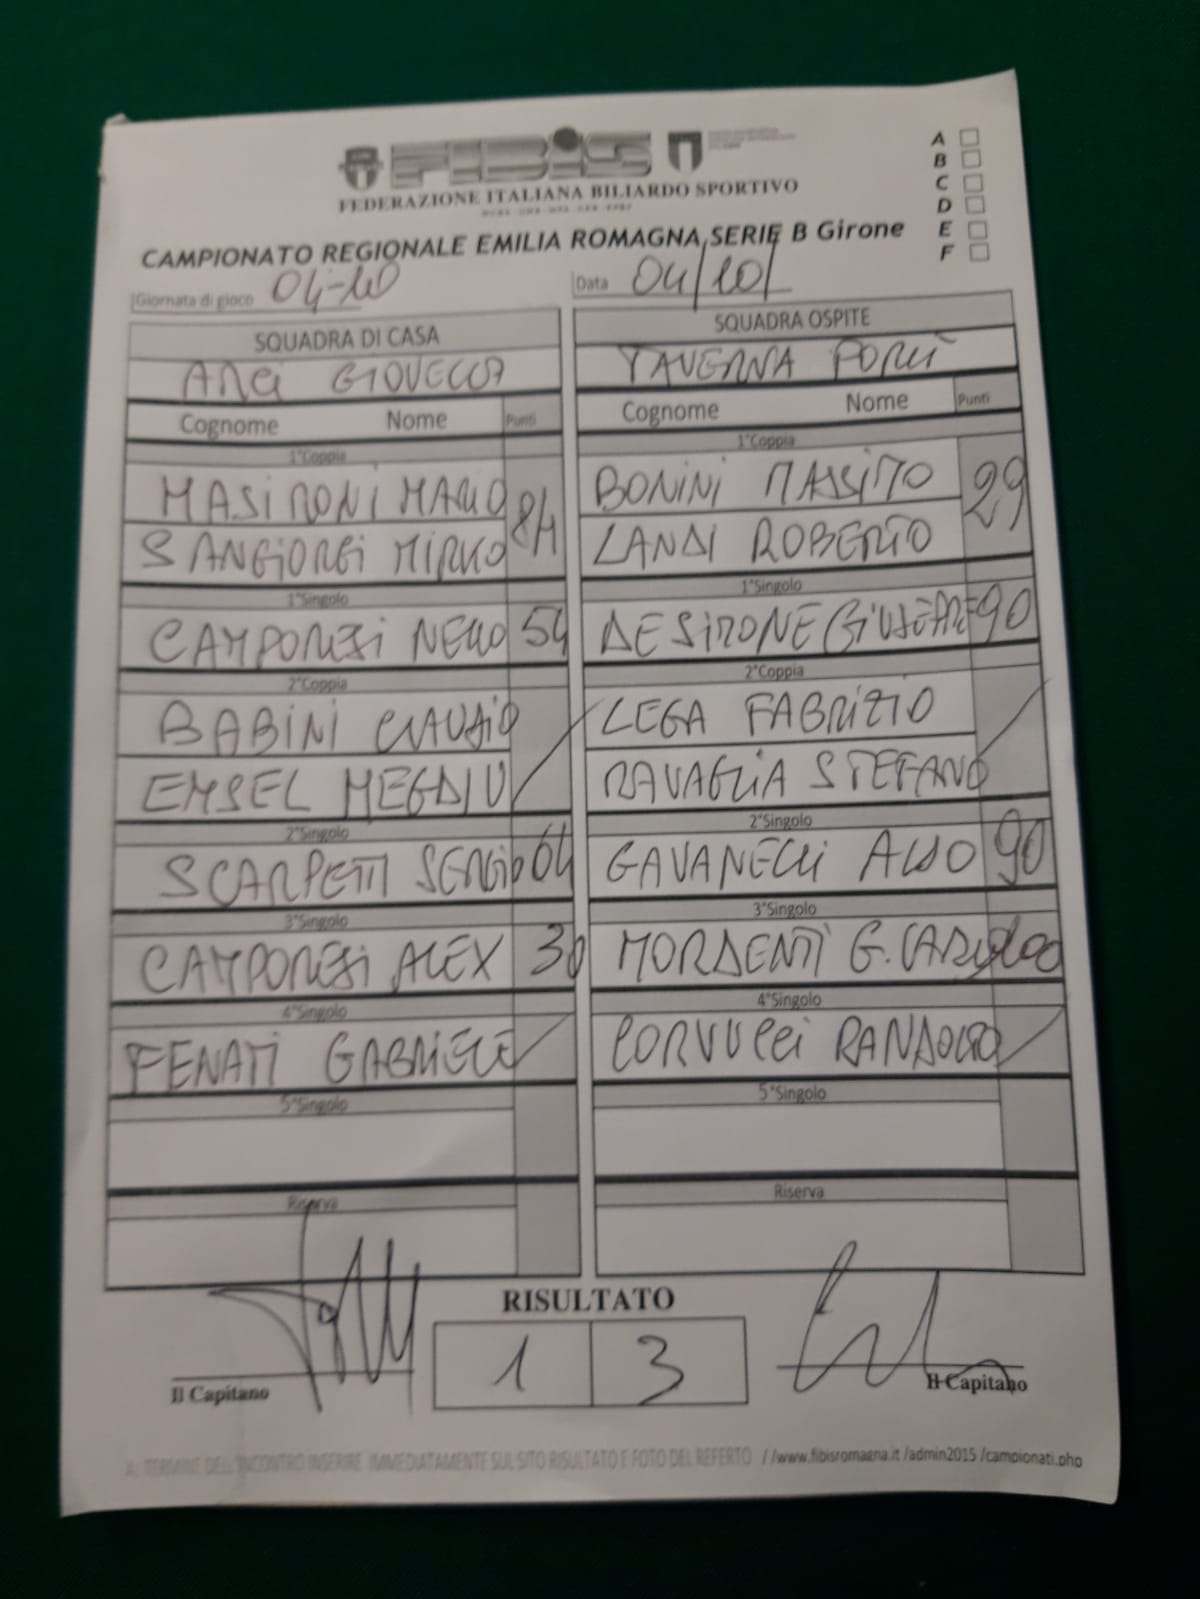 FIBIS
FEDERAZIONE ITALIANA BILIARDO SPORTIVO
A
B
C
D
E
F
CAMPIONATO REGIONALE EMILIA ROMAGNA SERIE B Girone
Giornata di gioco 04-10
Data 04/10/
SQUADRA DI CASA
ARCI GIOVECCA
Cognome Nome Punti
1°Coppia
MASIRONI MARIO
SANGIORGI MIRKO
84
1°Singolo
CAMPORESI NELLO 54
2°Coppia
BABINI CLAUDIO
EMSEL MEGDIU
2°Singolo
SCARPETTI SERGIO 64
3°Singolo
CAMPORESI ALEX 30
4°Singolo
FENATI GABRIELE
5°Singolo
Riserva
SQUADRA OSPITE
TAVERNA FORLI
Cognome Nome Punti
1°Coppia
BONINI MASSIMO
LANDI ROBERTO
29
1°Singolo
DESIMONE GIUSEPPE 90
2°Coppia
LEGA FABRIZIO
RAVAGLIA STEFANO
2°Singolo
GAVANELLI ALDO 90
3°Singolo
MORDENTI G.CARLO
4°Singolo
CORVUCCI RANDOLFO
5°Singolo
Riserva
RISULTATO
1 3
Il Capitano
Il Capitano
AL TERMINE DELL'INCONTRO INSERIRE IMMEDIATAMENTE SUL SITO RISULTATO E FOTO DEL REFERTO //www.fibisromagna.it /admin2015 /campionati.php